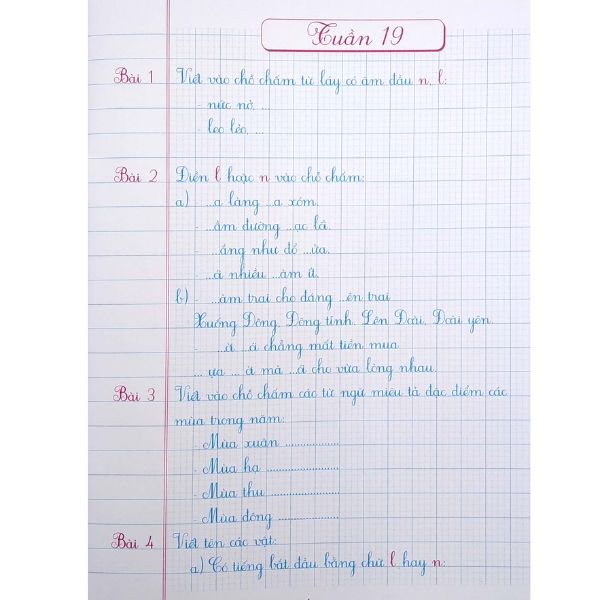 Tuần 19
Bài 1 Viết vào chỗ chấm từ láy có âm đầu n, l:
- nức nở, ...
- leo lẻo, ...
Bài 2 Điền l hoặc n vào chỗ chấm:
a) - ...a làng ...a xóm.
- ...ầm đường ...ạc lối.
- ...ắng như đổ ...ửa.
- ...á nhiều ...àm ít.
b) - ...àm trai cho đáng ...ên trai
Xuống Đông, Đông tĩnh. Lên Đoài, Đoài yên.
- ...ời ...ói chẳng mất tiền mua
... ựa ... ời mà ...ói cho vừa lòng nhau.
Bài 3 Viết vào chỗ chấm các từ ngữ miêu tả đặc điểm các
mùa trong năm:
- Mùa xuân ..................
- Mùa hạ ........................
- Mùa thu .......................
- Mùa đông ....................
Bài 4 Viết tên các vật:
a) Có tiếng bắt đầu bằng chữ l hay n: